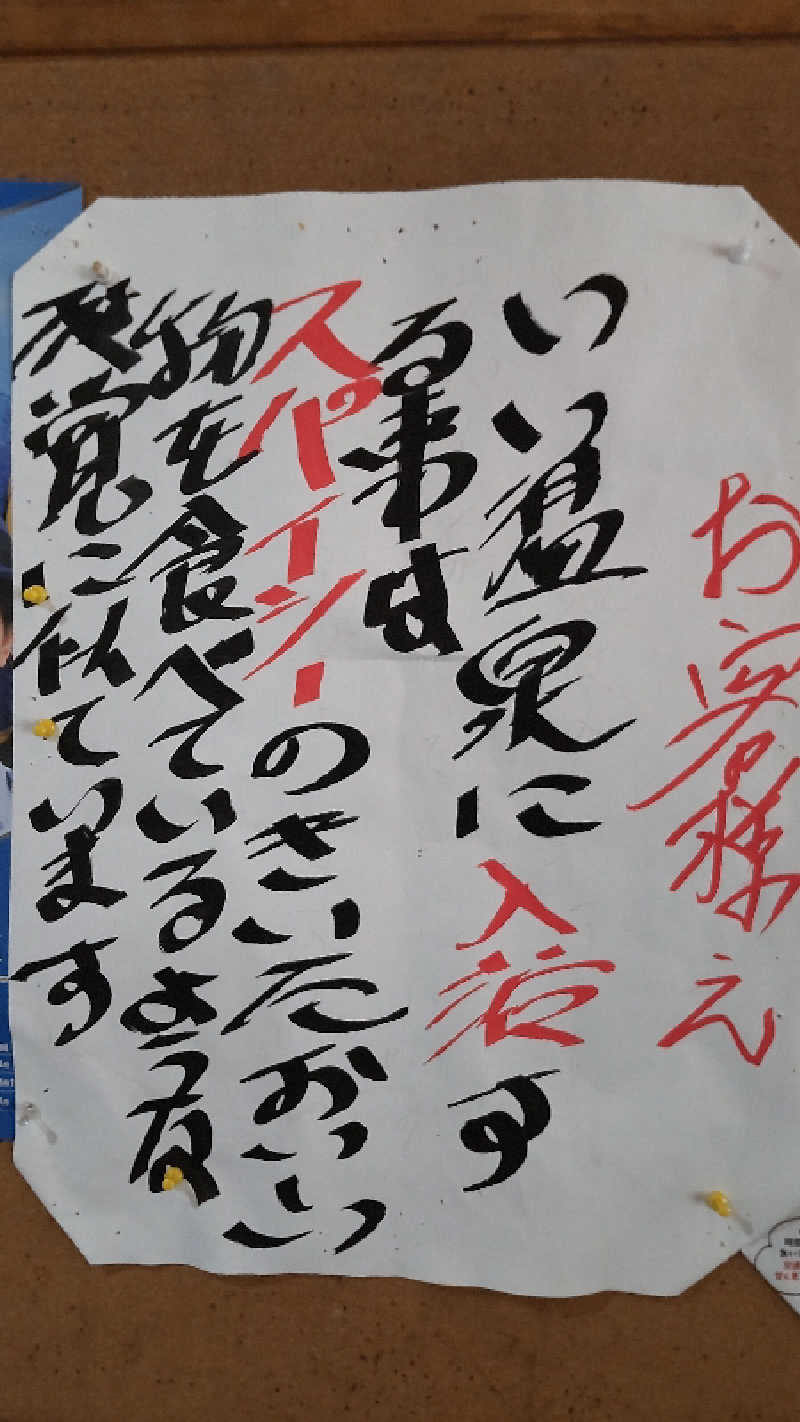 お客様え
いい温泉に入浴す
る事は
スパイシーのきいたおいしい
物を食べているような
覚に似ています